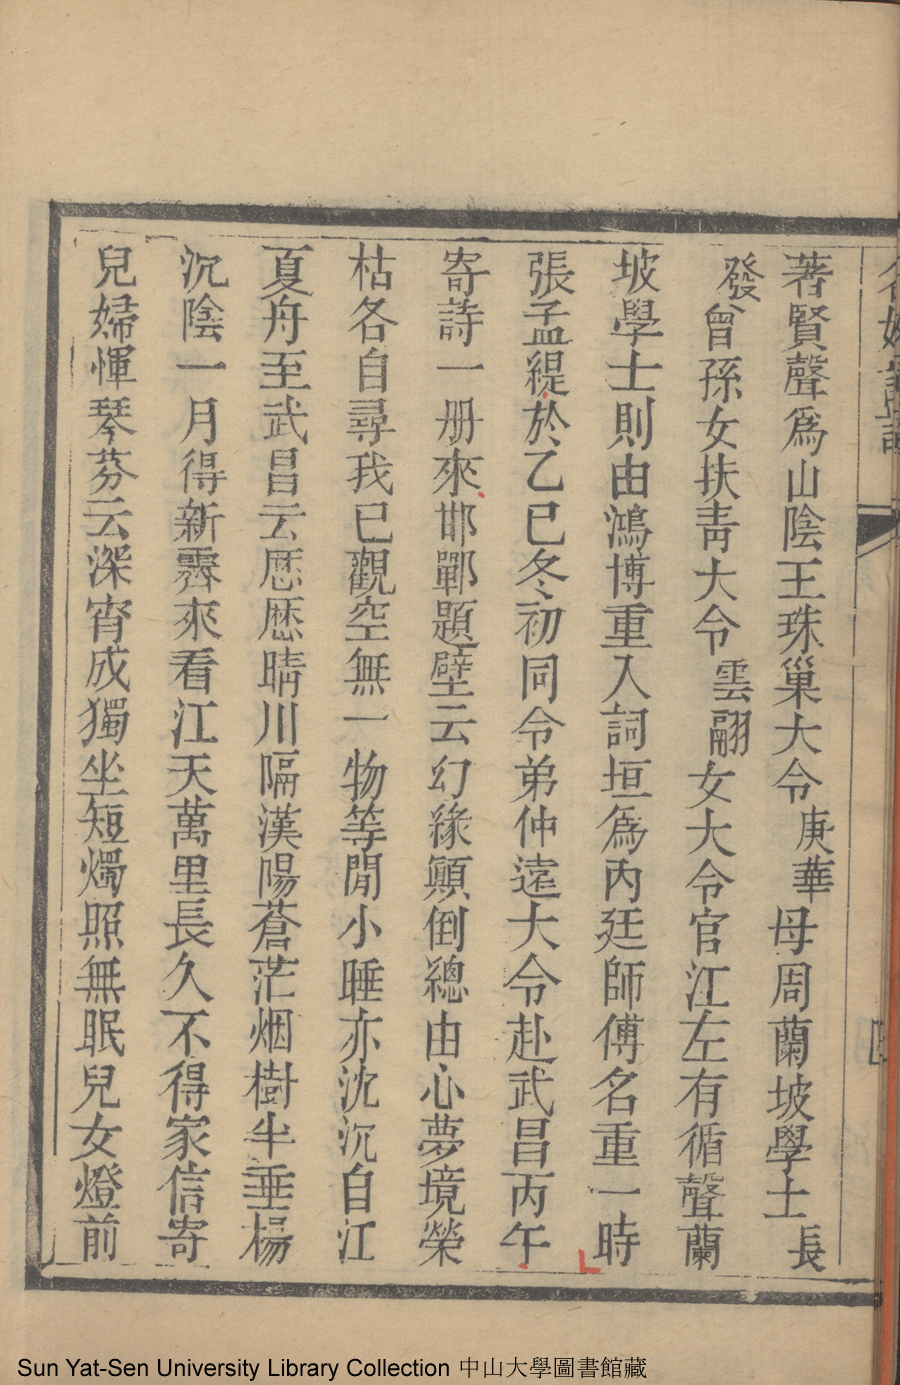 著賢聲爲山陰王珠巢大令庚華母周蘭坡學士長
發曾孫女扶靑大令雲翮女大令官江左有循聲蘭
坡學士則由鴻博重入詞垣爲內廷師傅名重一時
張孟緹於乙巳冬初同令弟仲遠大令赴武昌丙午
寄詩一册來邯鄲題壁云幻緣顚倒總由心夢境榮
枯各自尋我已觀空無一物等閒小睡亦沈沉自江
夏舟至武昌云歷歷晴川隔漢陽蒼茫烟樹半垂楊
沉陰一月得新霽來看江天萬里長久不得家信寄
兒婦惲琴芬云深宵成獨坐短燭照無眠兒女燈前
Sun Yat-Sen University Library Collection 中山大學圖書館藏